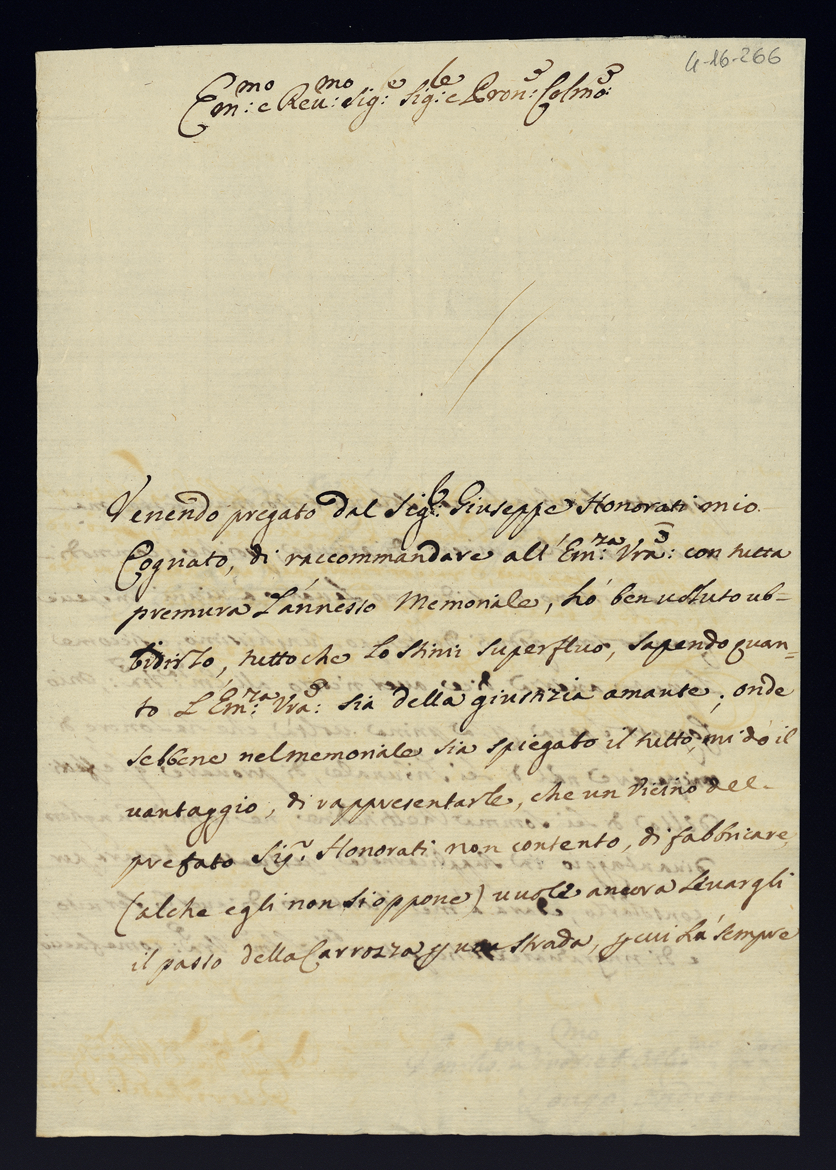 4-16-266
Em:mo e Reu:mo Sig:re Sig:re e Pron:e Colmo:
Venendo pregato dal Sig:r Giuseppe Honorati mio
Cognato, di raccommandare all'Em:za Vra: con tutta
premura L'annesso Memoriale, hò ben uoluto ub-
bidirlo, tutto che lo stimi superfluo, sapendo quan-
to L'Em:za Vra: sia della giustizia amante; onde
sebbene nel memoriale sia spiegato il tutto, mi dò il
uantaggio, di rappresentarle, che un Vicino del
prefato Sig:r Honorati non contento, di fabbricare,
(alche egli non si oppone) uuole ancora leuargli
il passo della Carrozza p una strada, p cui hà sempre